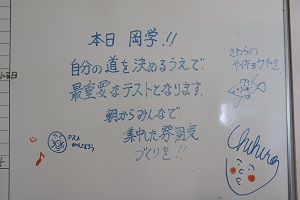 本日 岡学!!
自分の道を決めるうえで
最重要なテストとなります。
朝からみんなで
集中した雰囲気
づくりを!!
さわらの
サイキョウやき
テスト
がんばろう
Chihiro